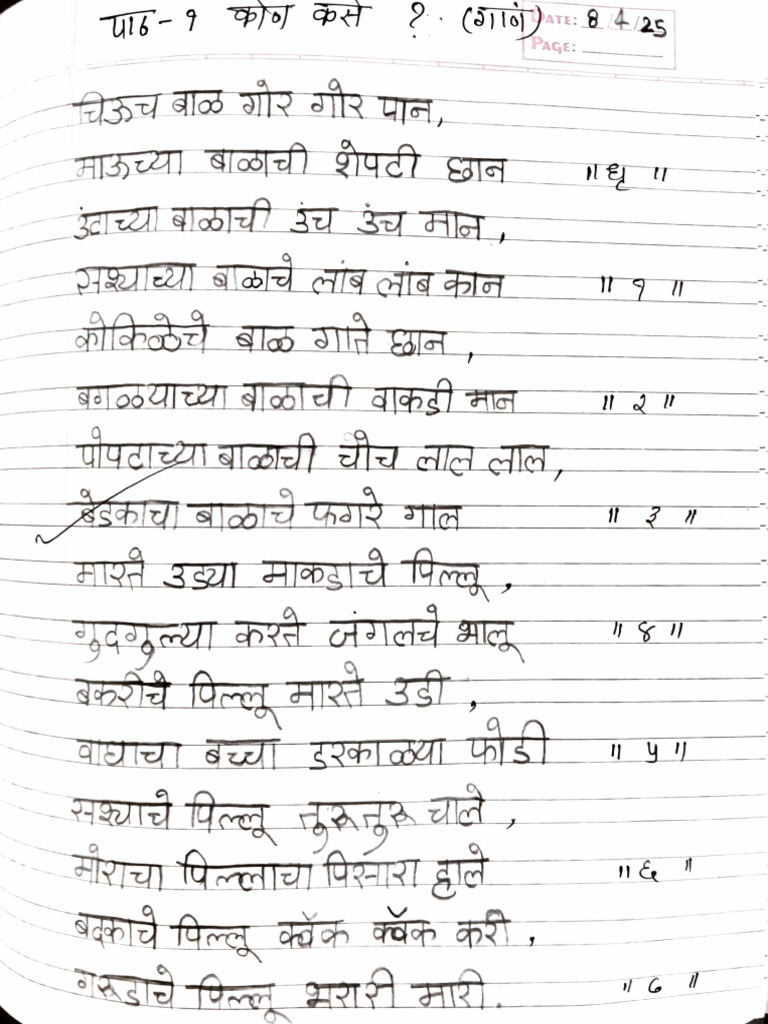 पाठ - १ कोण कसे ? (गाणं) DATE: 8/4/25
PAGE:
चिऊच बाळ गोर गोर पान,
माऊच्या बाळाची शेपटी छान ॥ धृ ॥
उंटाच्या बाळाची उंच उंच मान,
सश्याच्या बाळाचे लांब लांब कान ॥ १ ॥
कोकिळेचे बाळ गाते छान,
बगळ्याच्या बाळाची वाकडी मान ॥ २ ॥
पोपटाच्या बाळाची चोच लाल लाल,
बेडकाचा बाळाचे फगरे गाल ॥ ३ ॥
मारते उड्या माकडाचे पिल्लू,
गुदगुल्या करते जंगलचे भालू ॥ ४ ॥
बकरीचे पिल्लू मारते उडी,
वाघाचा बच्चा डरकाळ्या फोडी ॥ ५ ॥
सश्याचे पिल्लू तुरूतुरू चाले,
मोराचा पिल्लाचा पिसारा हाले ॥ ६ ॥
बदकाचे पिल्लू क्वॅक क्वॅक करी,
गरूडाचे पिल्लू भरारी मारी. ॥ ७ ॥